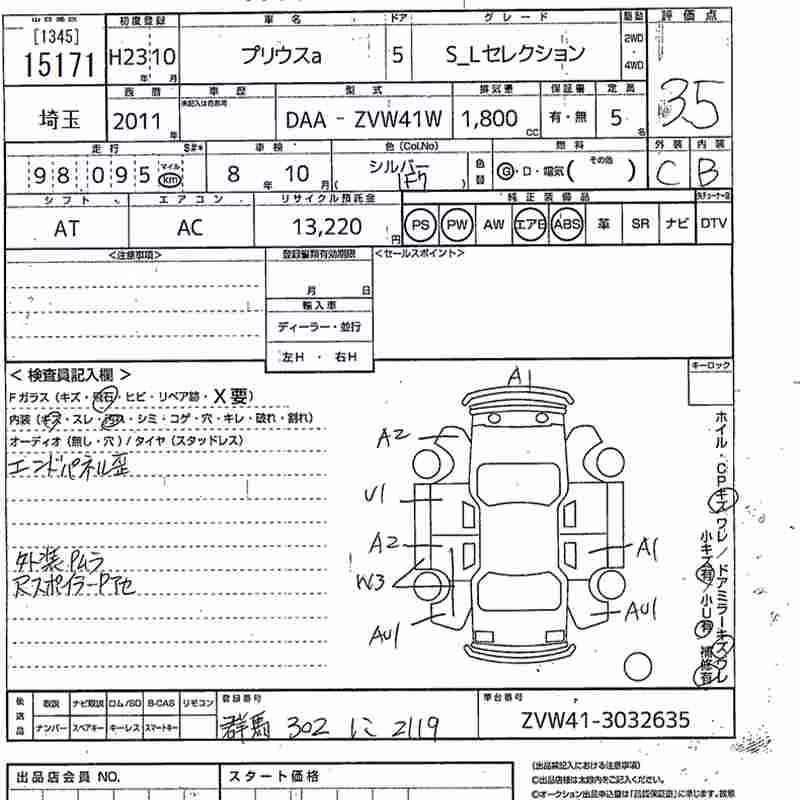 [1345]
15171
初度登録 車名 ドア グレード 駆動 評価点
H23 年 10 月 プリウスa 5 S_Lセレクション 2WD・4WD 3.5
西暦 車歴 型式 排気量 保証書 定員
埼玉 2011年 未記入は自家用 DAA - ZVW41W 1,800cc 有・無 5名
走行 S#* 車検 色(Col.No) 燃料 外装 内装
98,095 マイル km 8年 10月 シルバー ( 1F7 ) 色替 G・D・電気( その他 ) C B
シフト エアコン リサイクル預託金 純正装備品
AT AC 13,220円 PS PW AW エアB ABS 革 SR ナビ DTV
<注意事項> 登録書類有効期限 <セールスポイント>
月 日
輸入車
ディーラー・並行
左H ・ 右H
< 検査員記入欄 > キーロック
Fガラス (キズ・飛石・ヒビ・リペア跡・X要)
内装 (キズ・スレ・汚れ・シミ・コゲ・穴・キレ・破れ・割れ)
オーディオ (無し・穴) / タイヤ (スタッドレス)
エンドパネル歪
外装Pムラ
RスポイラーPハゼ
A1
A2
U1
A2
W3
AU1
A1
AU1
ホイル・CPキズワレ/ドアミラーキズワレ
小キズ有/小U有 補修有
後送品 取説 ナビ取説 ロム/SD B-CAS リモコン 登録番号 車台番号
ナンバー スペアキー キーレス スマートキー 群馬 302 に 2119 ZVW41-3032635
出品店会員 NO. スタート価格 (出品票記入における注意事項)
①出品店様は太枠内をご記入ください。